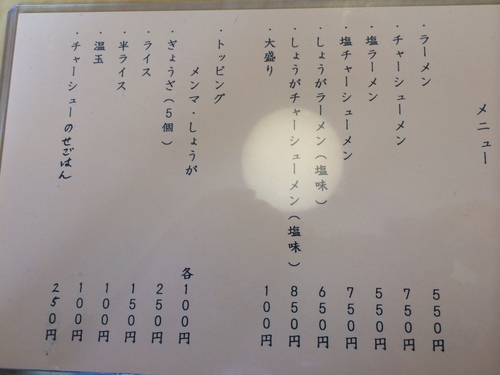 メニュー
・ラーメン 550円
・チャーシューメン 750円
・塩ラーメン 550円
・塩チャーシューメン 750円
・しょうがラーメン(塩味) 650円
・しょうがチャーシューメン(塩味) 850円
・大盛り 100円
・トッピング
メンマ・しょうが 各100円
・ぎょうざ(5個) 250円
・ライス 150円
・半ライス 100円
・温玉 100円
・チャーシューのせごはん 250円